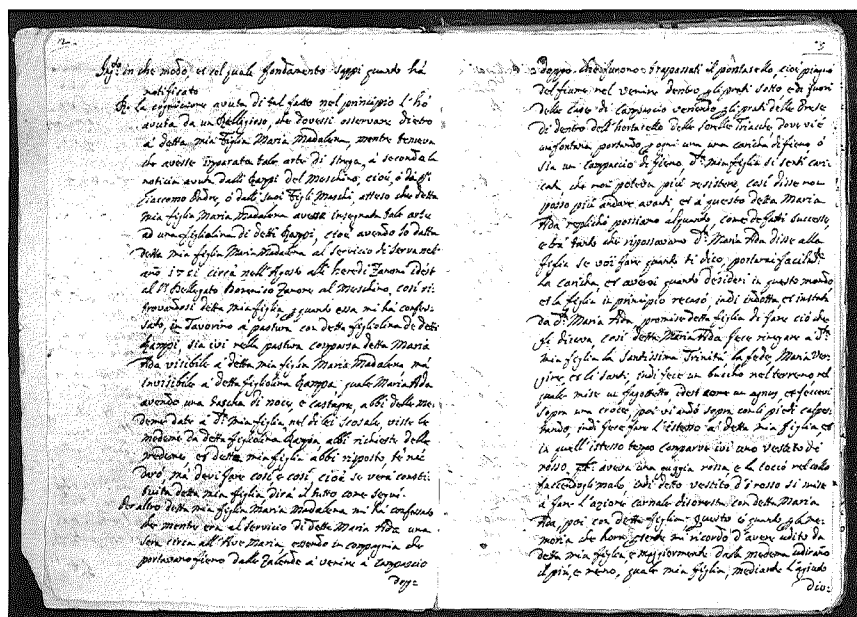 12.
Int.to in che modo, et col quale fondamento sappi quanto hà
notificato
R. la cognizione avuta di tal fatto nel principio l'hò
avuta da un Relligioso, che dovessi osservare dietro
à detta mia figlia Maria Madalena, mentre temeva
che avesse inparata tale arte di strega, à seconda la
noticia avuta dalli Gampi del Meschino, cioè, ò dal Sr.
Giaccomo Padre, ò dalli suoi figli Maschi, atteso che detta
mia figlia Maria Madalena avesse insegnata tale arte
ad una figliolina di detti Gampi, cioè avendo io datta
detta mia figlia Maria Madalena al servicio di serva nel
año circa nell'Agosto alli heredi Zanoni idest
al Sr. Dellegato Domenico Zanone al Meschino, così ri-
trovandosi detta mia figlia, quanto essa mi hà confes-
sato, in Tavorino à pastura con detta figliolina de detti
Gampi, sia ivi nella pastura comparsa detta Maria
Ada visibile à detta mia figlia Maria Madalena mà
invisibile à detta figliolina Gampa, quale Maria Ada
avendo una sascha di noce, e castagne, abbi delle me-
deme date à da. mia figlia nel di lei scosale, viste le
medeme da detta figliolina Gampa abbi richieste delle
medeme et detta mia figlia abbi risposto, te ne
darò, mà devi fare così e così cioè se verà consti-
tuita detta mia figlia dirà il tutto come segui.
Per altro detta mia figlia Maria Madalena mi hà confessato
che mentre era al servicio di detta Maria Ada una
sera circa all'Ave Maria, essendo in compagnia che
portavano fieno dalle Zalende à venire à Campascio
dop=
doppo che furono trapassati il pontasello, cioè piagno
del fiume nel venire dentro gli prati sotto e di fuori
delle Case di Campascio venendo gli prati delle Prese
di dentro dell'hortaciello delle sorelle Triache, dove vi è
una fontana portando ogni una una caricha di fieno, ò
sia un campaccio di fieno, da. mia figlia si sentì cari-
cata, che non poteva più resistere, così disse non
posso più andare avanti, et à questo detta Maria
Ada replicò possiamo alquanto, come de fatti successe,
e trà tanto che ripossavano da. Maria Ada disse alla
figlia se voi fare quanto ti dico, portarai facilmte.
la caricha, et averai quanto desideri in questo mondo
et la figlia in principio recusò, indi indotta et instata
da da. Maria Ada, promise detta figlia di fare ciò che
gli diceva, così detta Maria Ada fece rinegare à da.
mia figlia la Santissima Trinità la fede, Maria Ver-
gine, et li Santi, indi fece un buscho nel terreno nel
quale mise un fagottetto idest come un agnus, et fecevi
sopra una croce, poi vi andò sopra con li piedi calpe-
stando, indi fece fare l'istesso à detta mia figlia, et
in quell'istesso tempo comparve ivi uno vestito di
rosso, aveva una roggia rossa, e la toccò nel colo
facendogli male, indi detto vestito di rosso si mise
à fare l'azione carnale disonesta con detta Maria
Ada, poi con detta figlia. Questo è quanto me-
moria che hora tiene mi ricordo d'avere udito da
detta mia figlia, e maggiormente dalla medema udirano
il più, e meno, quale mia figlia, mediante l'agiuto
Div: